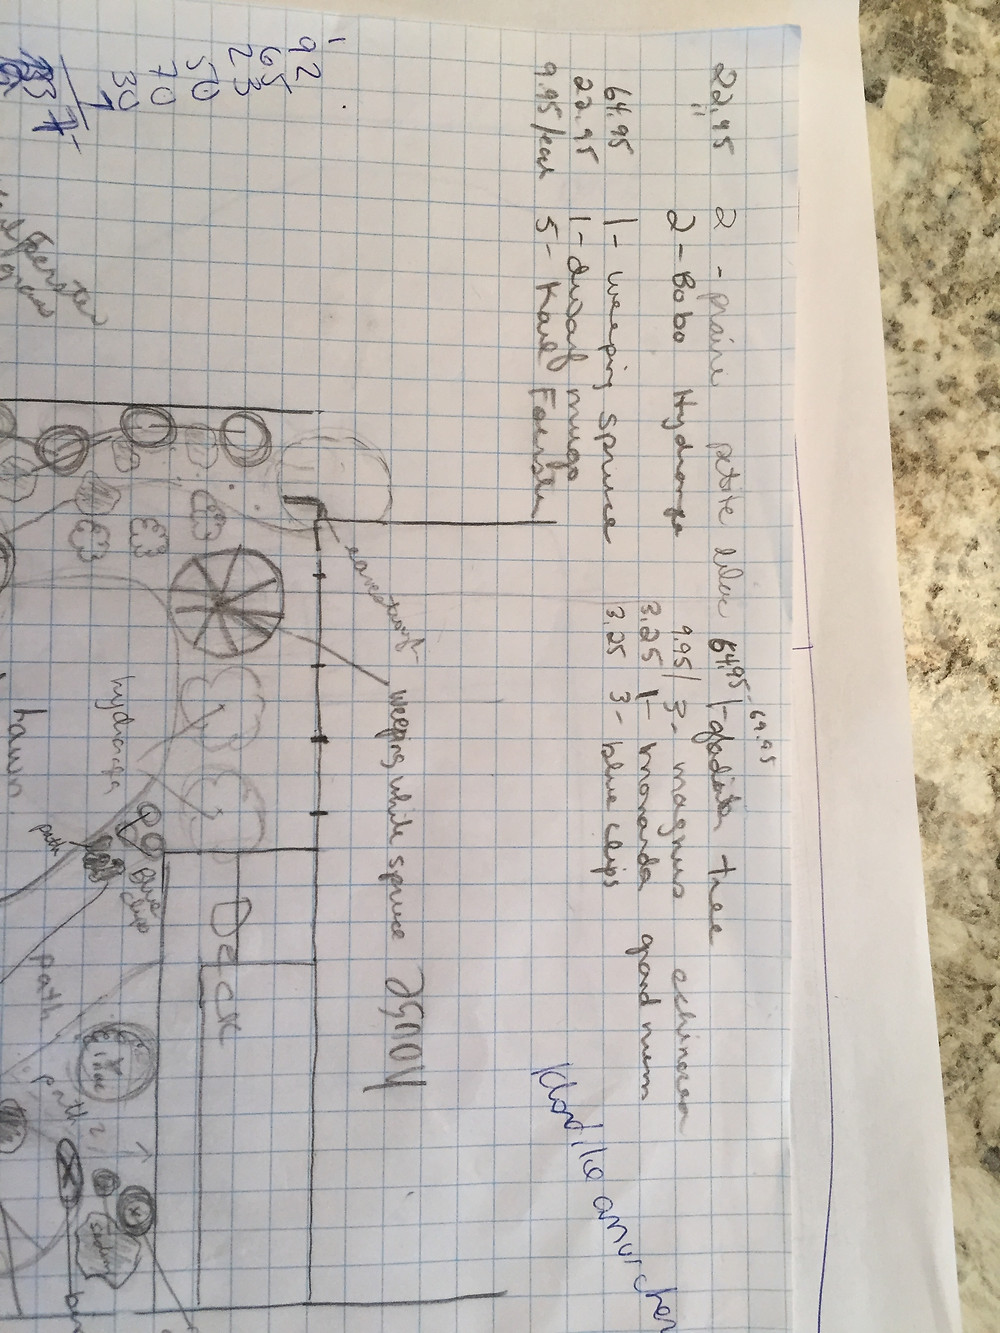 22.95 2 - prairie petite lilac 64.95 1- gladitia tree
69.95
" 2 - Bobo Hydrangea 9.95/ 3- magnus echinacea
64.95 1 - weeping spruce 3.25 1- monarda grand mum
22.95 1 - dwarf mugo 3.25 3 - blue clips
9.95/each 5 - Karl Foerster
Klondike amur cher
1
92
65
23
50
70
30
House
weeping white spruce
eavestrough
Deck
hydrangea
Blue
clips
path
Lawn
path
lilac
path
Foerster
grass